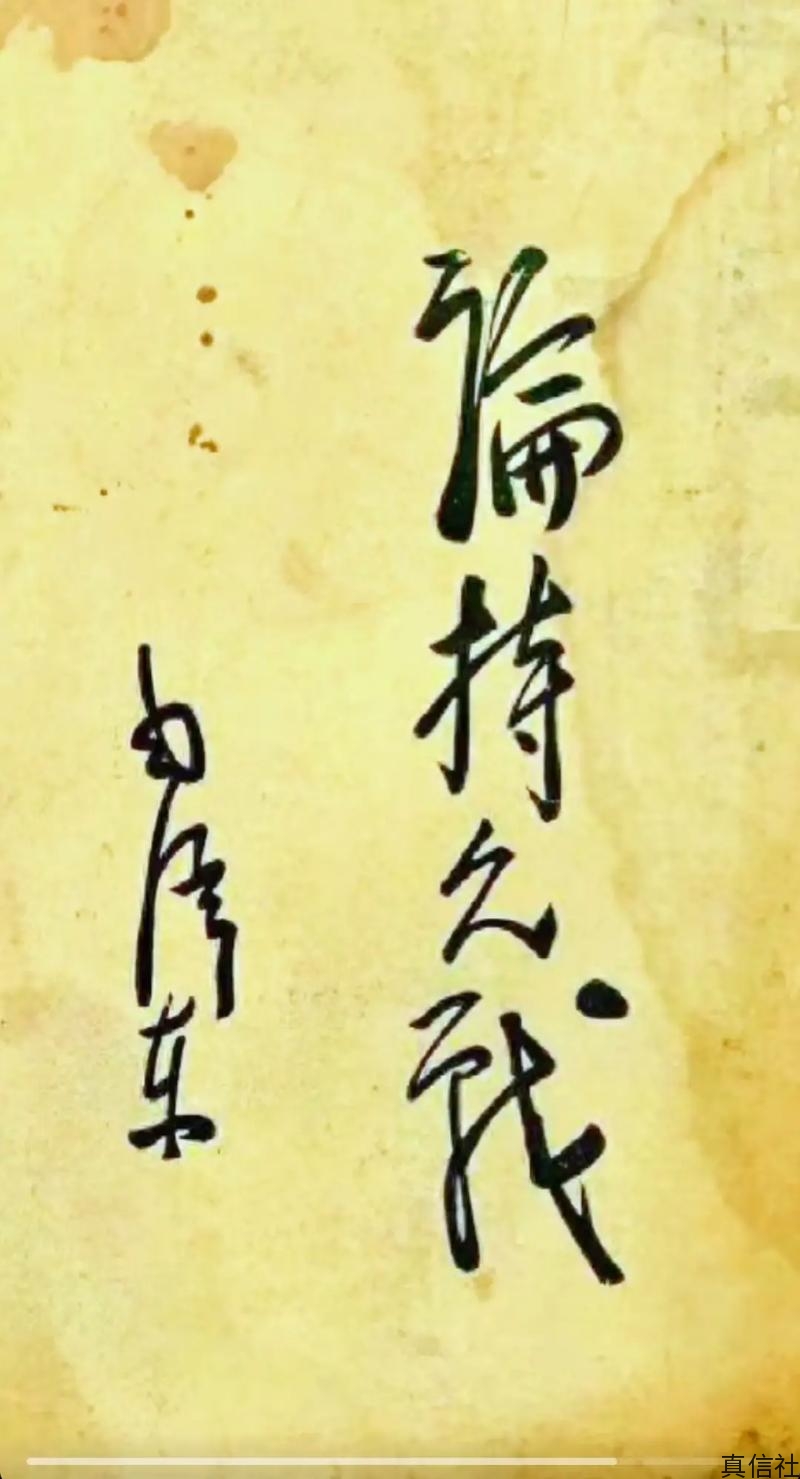 論持久戰
毛澤东
真信社